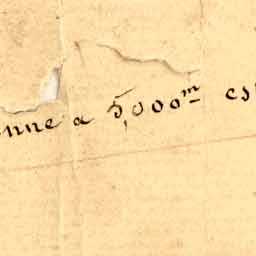 nne a 5,000ᵐ es